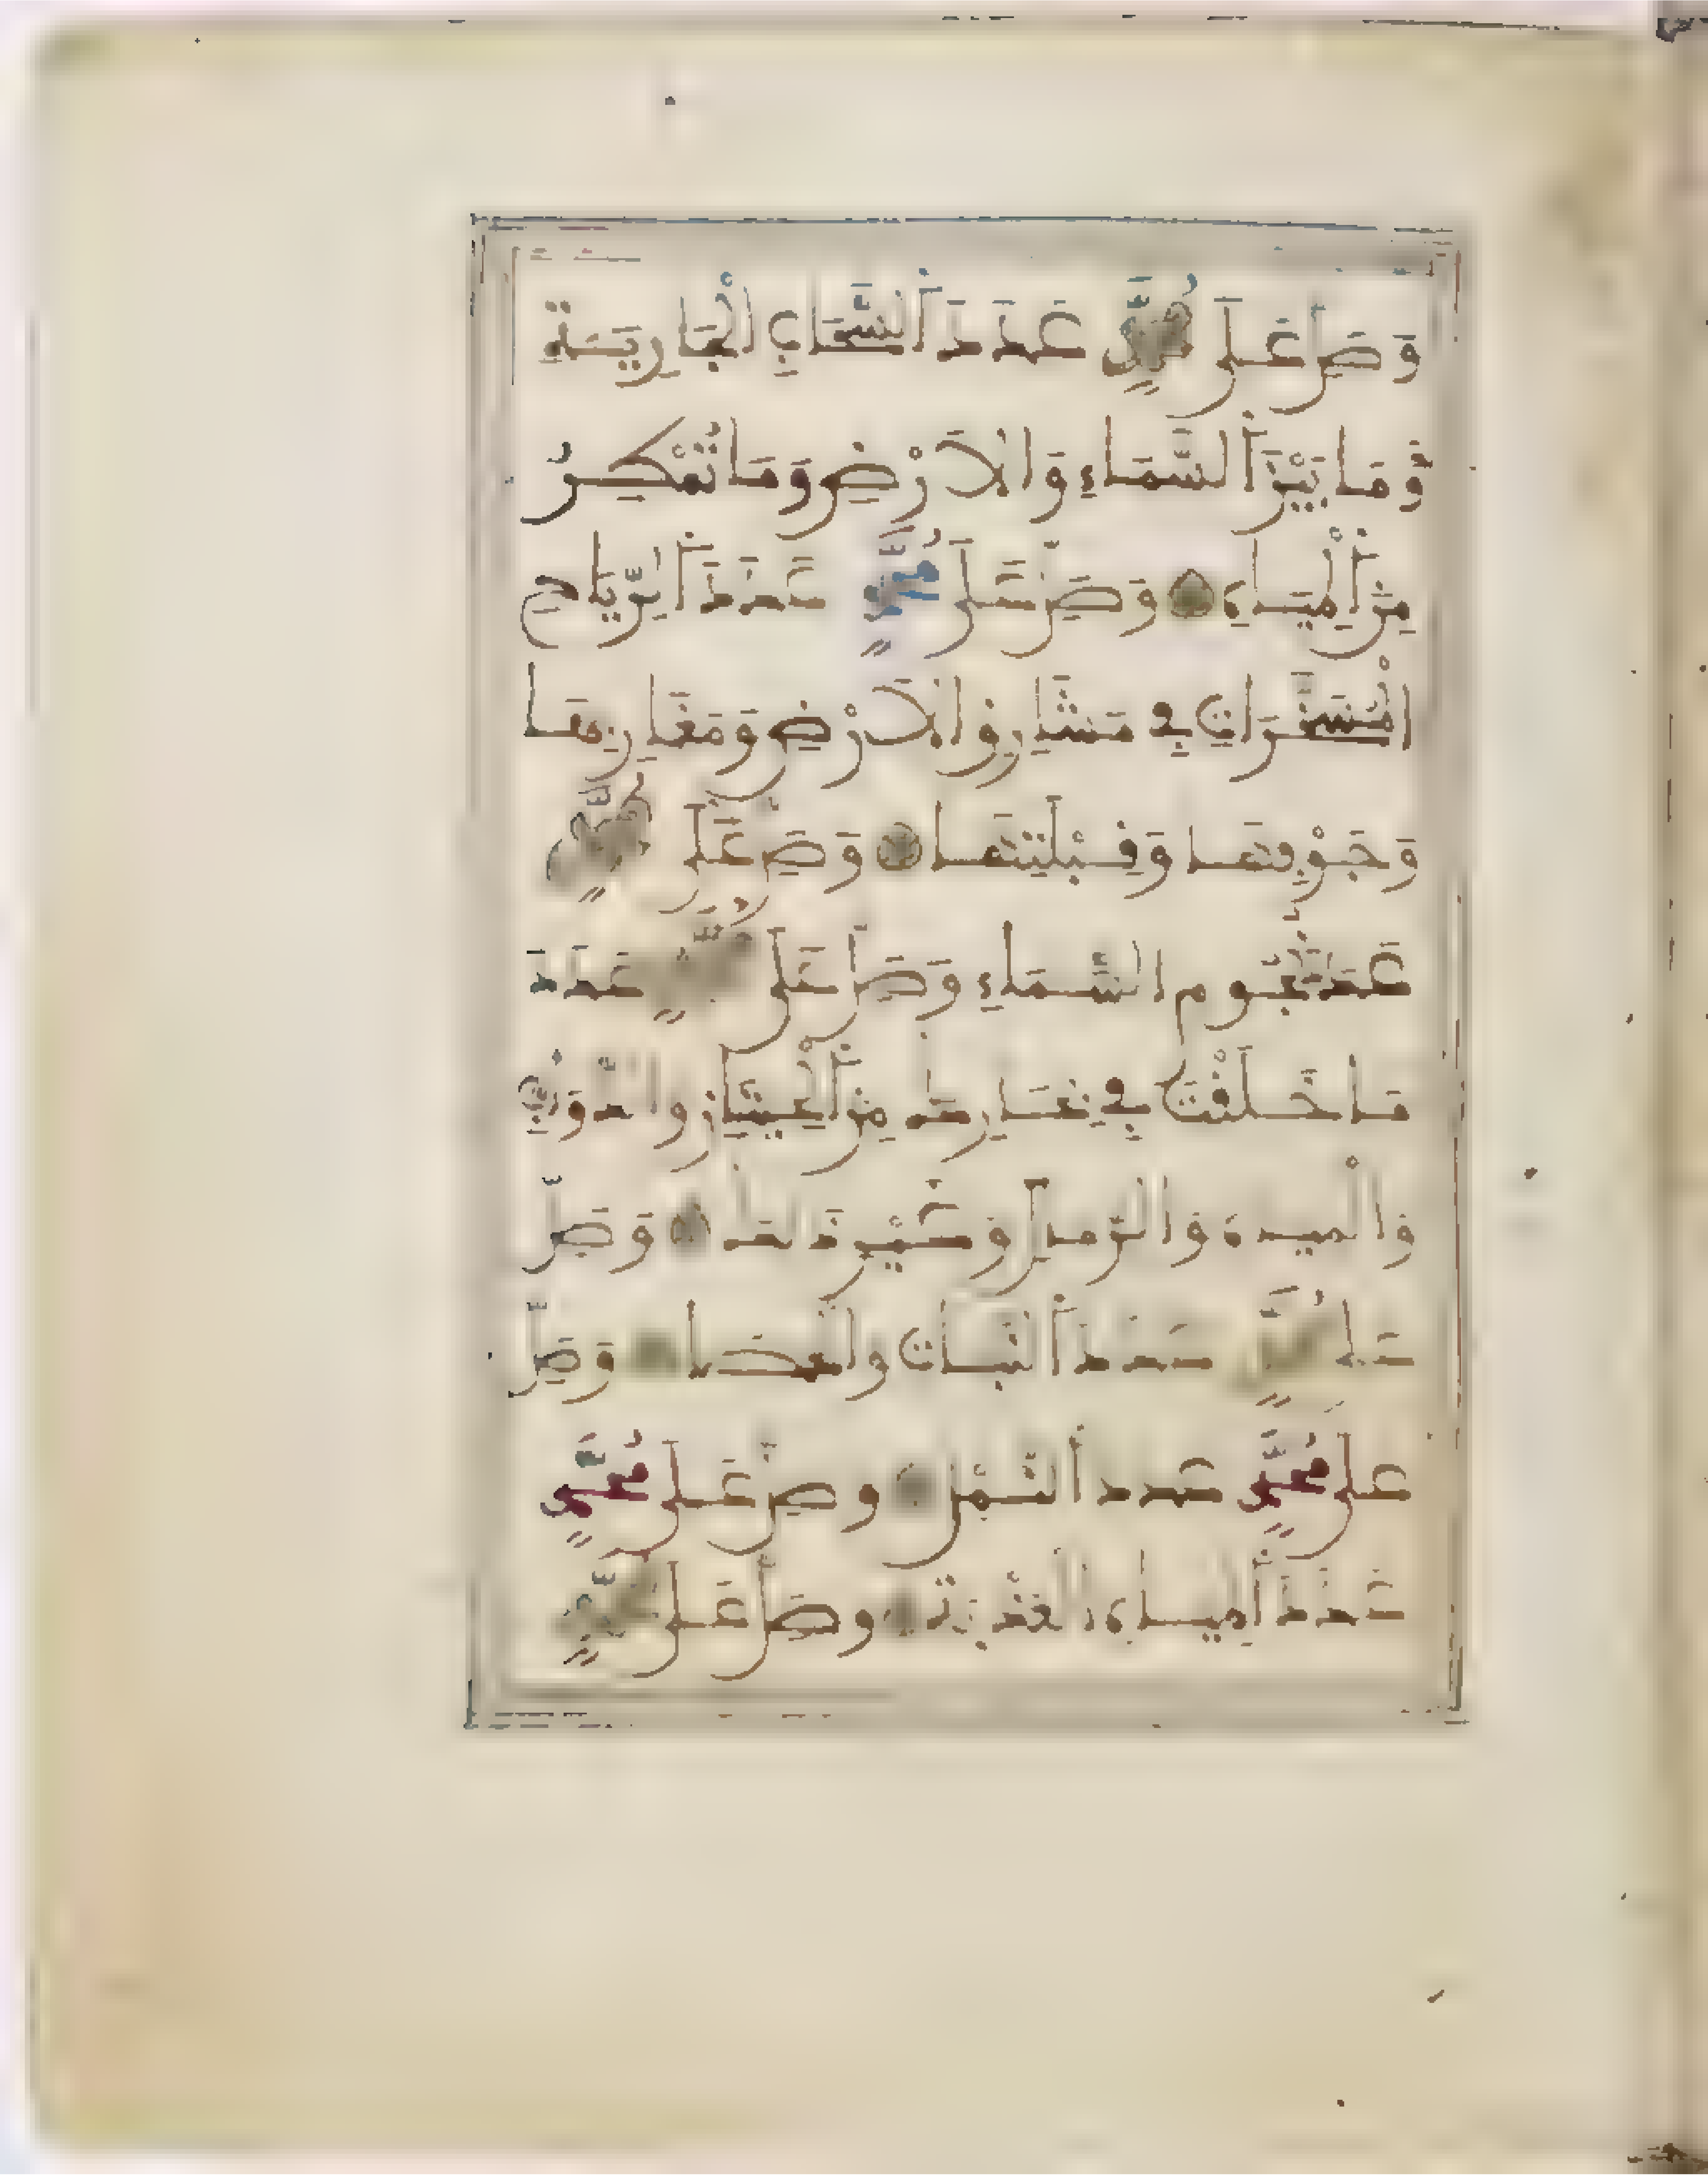 وَصَلِّ عَلَى مُحَمَّدٍ عَدَدَ السَّحَابِ الْجَارِيَةِ
وَمَا بَيْنَ السَّمَاءِ وَالْأَرْضِ وَمَا تُمْطِرُ
مِنَ الْمِيَاهِ وَصَلِّ عَلَى مُحَمَّدٍ عَدَدَ الرِّيَاحِ
الْمُسَخَّرَاتِ فِي مَشَارِقِ الْأَرْضِ وَمَغَارِبِهَا
وَجَوْفِهَا وَقِبْلَتِهَا وَصَلِّ عَلَى مُحَمَّدٍ
عَدَدَ نُجُومِ السَّمَاءِ وَصَلِّ عَلَى مُحَمَّدٍ عَدَدَ
مَا خَلَقْتَ فِي بِحَارِهَا مِنَ الْحِيتَانِ وَالدَّوَابِّ
وَالْمِيَاهِ وَالرِّمَالِ وَغَيْرِ ذَلِكَ وَصَلِّ
عَلَى مُحَمَّدٍ عَدَدَ النَّبَاتِ وَالْحَصَا وَصَلِّ
عَلَى مُحَمَّدٍ عَدَدَ النَّمْلِ وَصَلِّ عَلَى مُحَمَّدٍ
عَدَدَ الْمِيَاهِ الْعَذْبَةِ وَصَلِّ عَلَى مُحَمَّدٍ